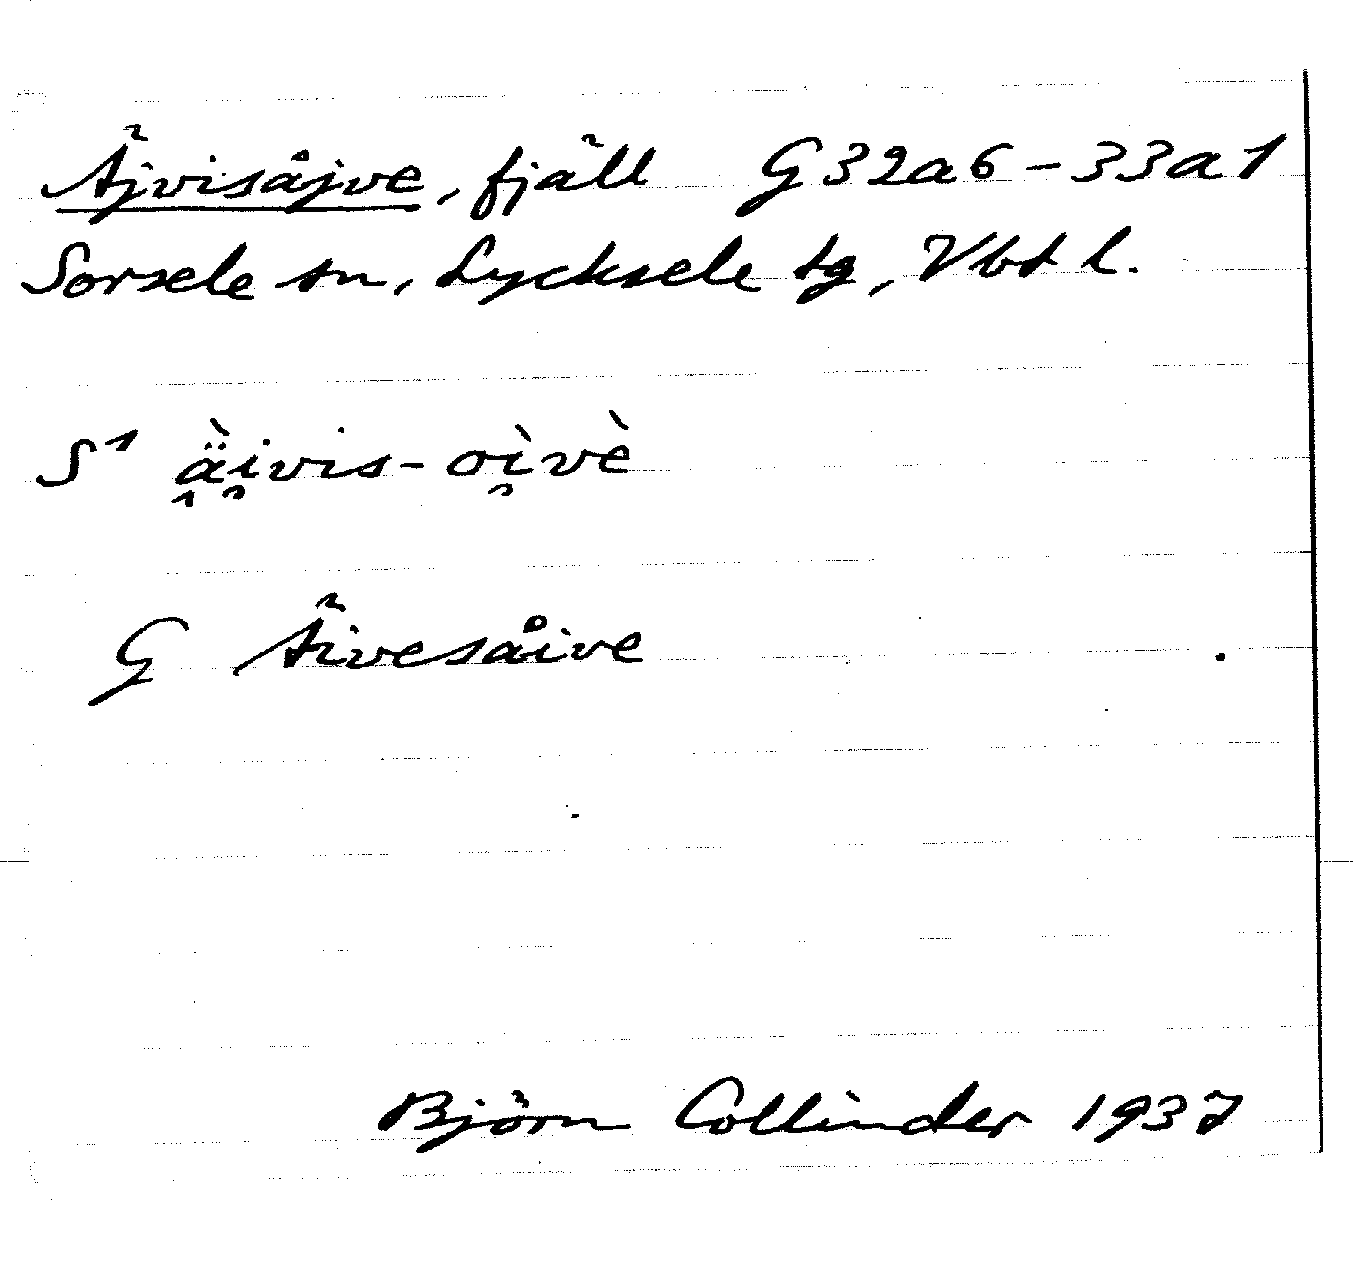 Äjvisåjve, fjäll G32a6-33a1
Sorsele sn, Lycksele tg, Vbt l.
S¹ ä̭̀i̯vis-oì̯vè
G Äivesåive
Björn Collinder 1937